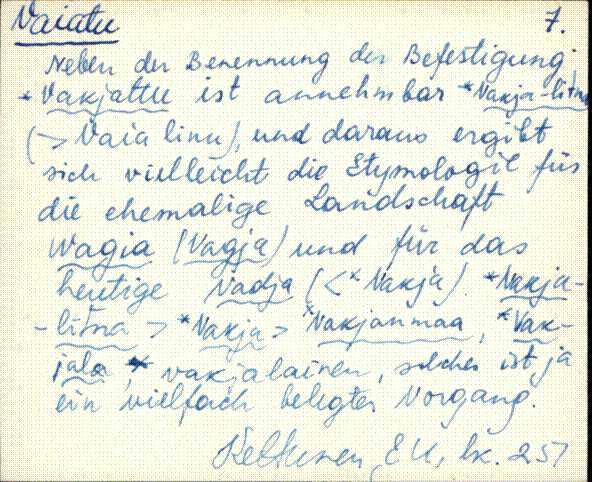 Vaiatu 7.
Neben der Benennung der Befestigung
*Vakjattu ist annehmbar *Vakja-litna
(> Vaia linn), und daraus ergibt
sich vielleicht die Etymologie für
die ehemalige Landschaft
Wagia (Vagja) und für das
heutige Vadja (<*Vakja). *Vakja-
-litna > *Vakja > *Vakjanmaa, *Vak-
jala, vakjalainen, solches ist ja
ein vielfach belegter Vorgang.
Kettunen, EK, lk. 257